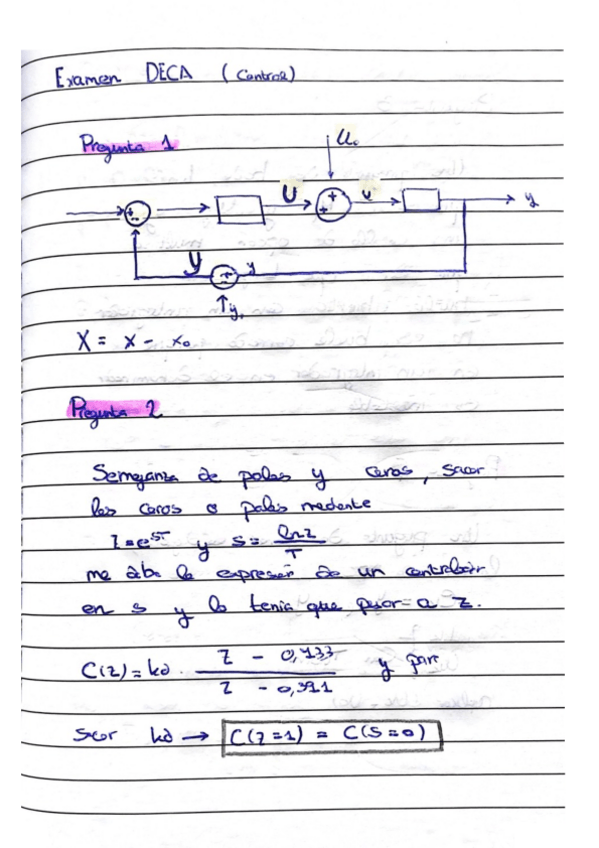 Examen DECA (Control)
Pregunta 1
U.
U u y
+ - + + 
y - + y
↑y.
X = x - x₀
Pregunta 2
Semejanza de polos y ceros, sacar
los ceros o polos mediante
z = e^sT y s = ln z / T
me daba la expresión de un controlador
en s y lo tenia que pasar a z.
C(z) = kd · (z - 0,733) / (z - 0,391) y para
sacar kd → C(z=1) = C(s=0)